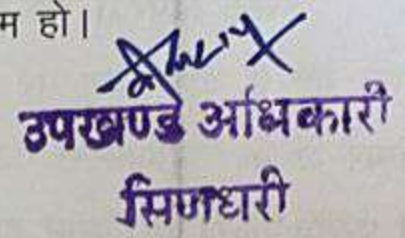 म हो।
उपखण्ड अधिकारी
सिणधरी